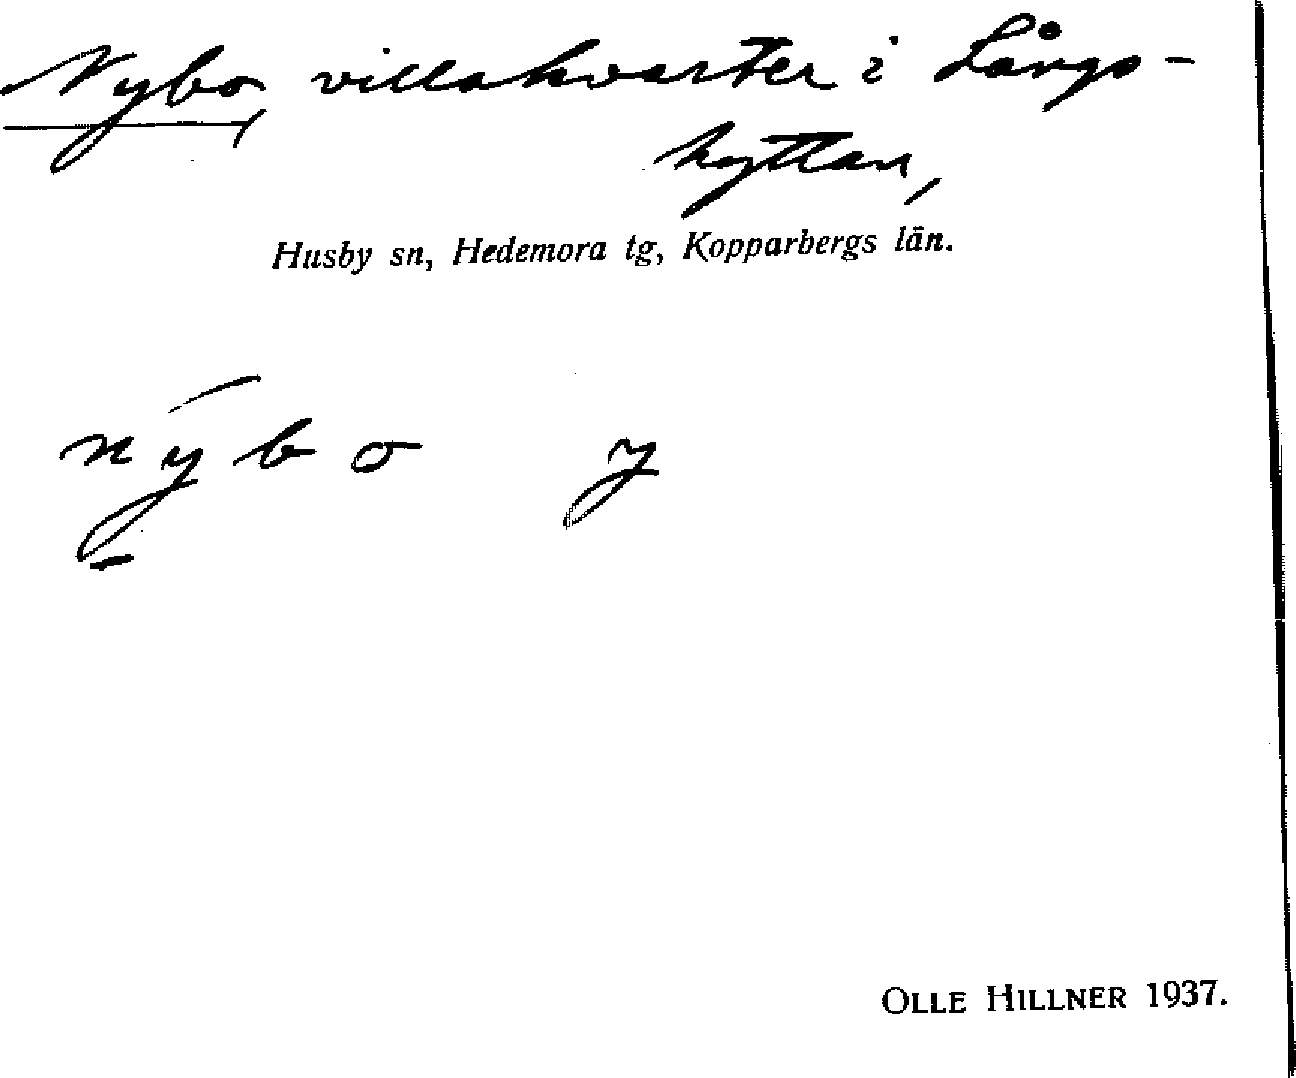 Nybo, villakvarter i Långs-
hyttan,
Husby sn, Hedemora tg, Kopparbergs län.
nýbo y
OLLE HILLNER 1937.